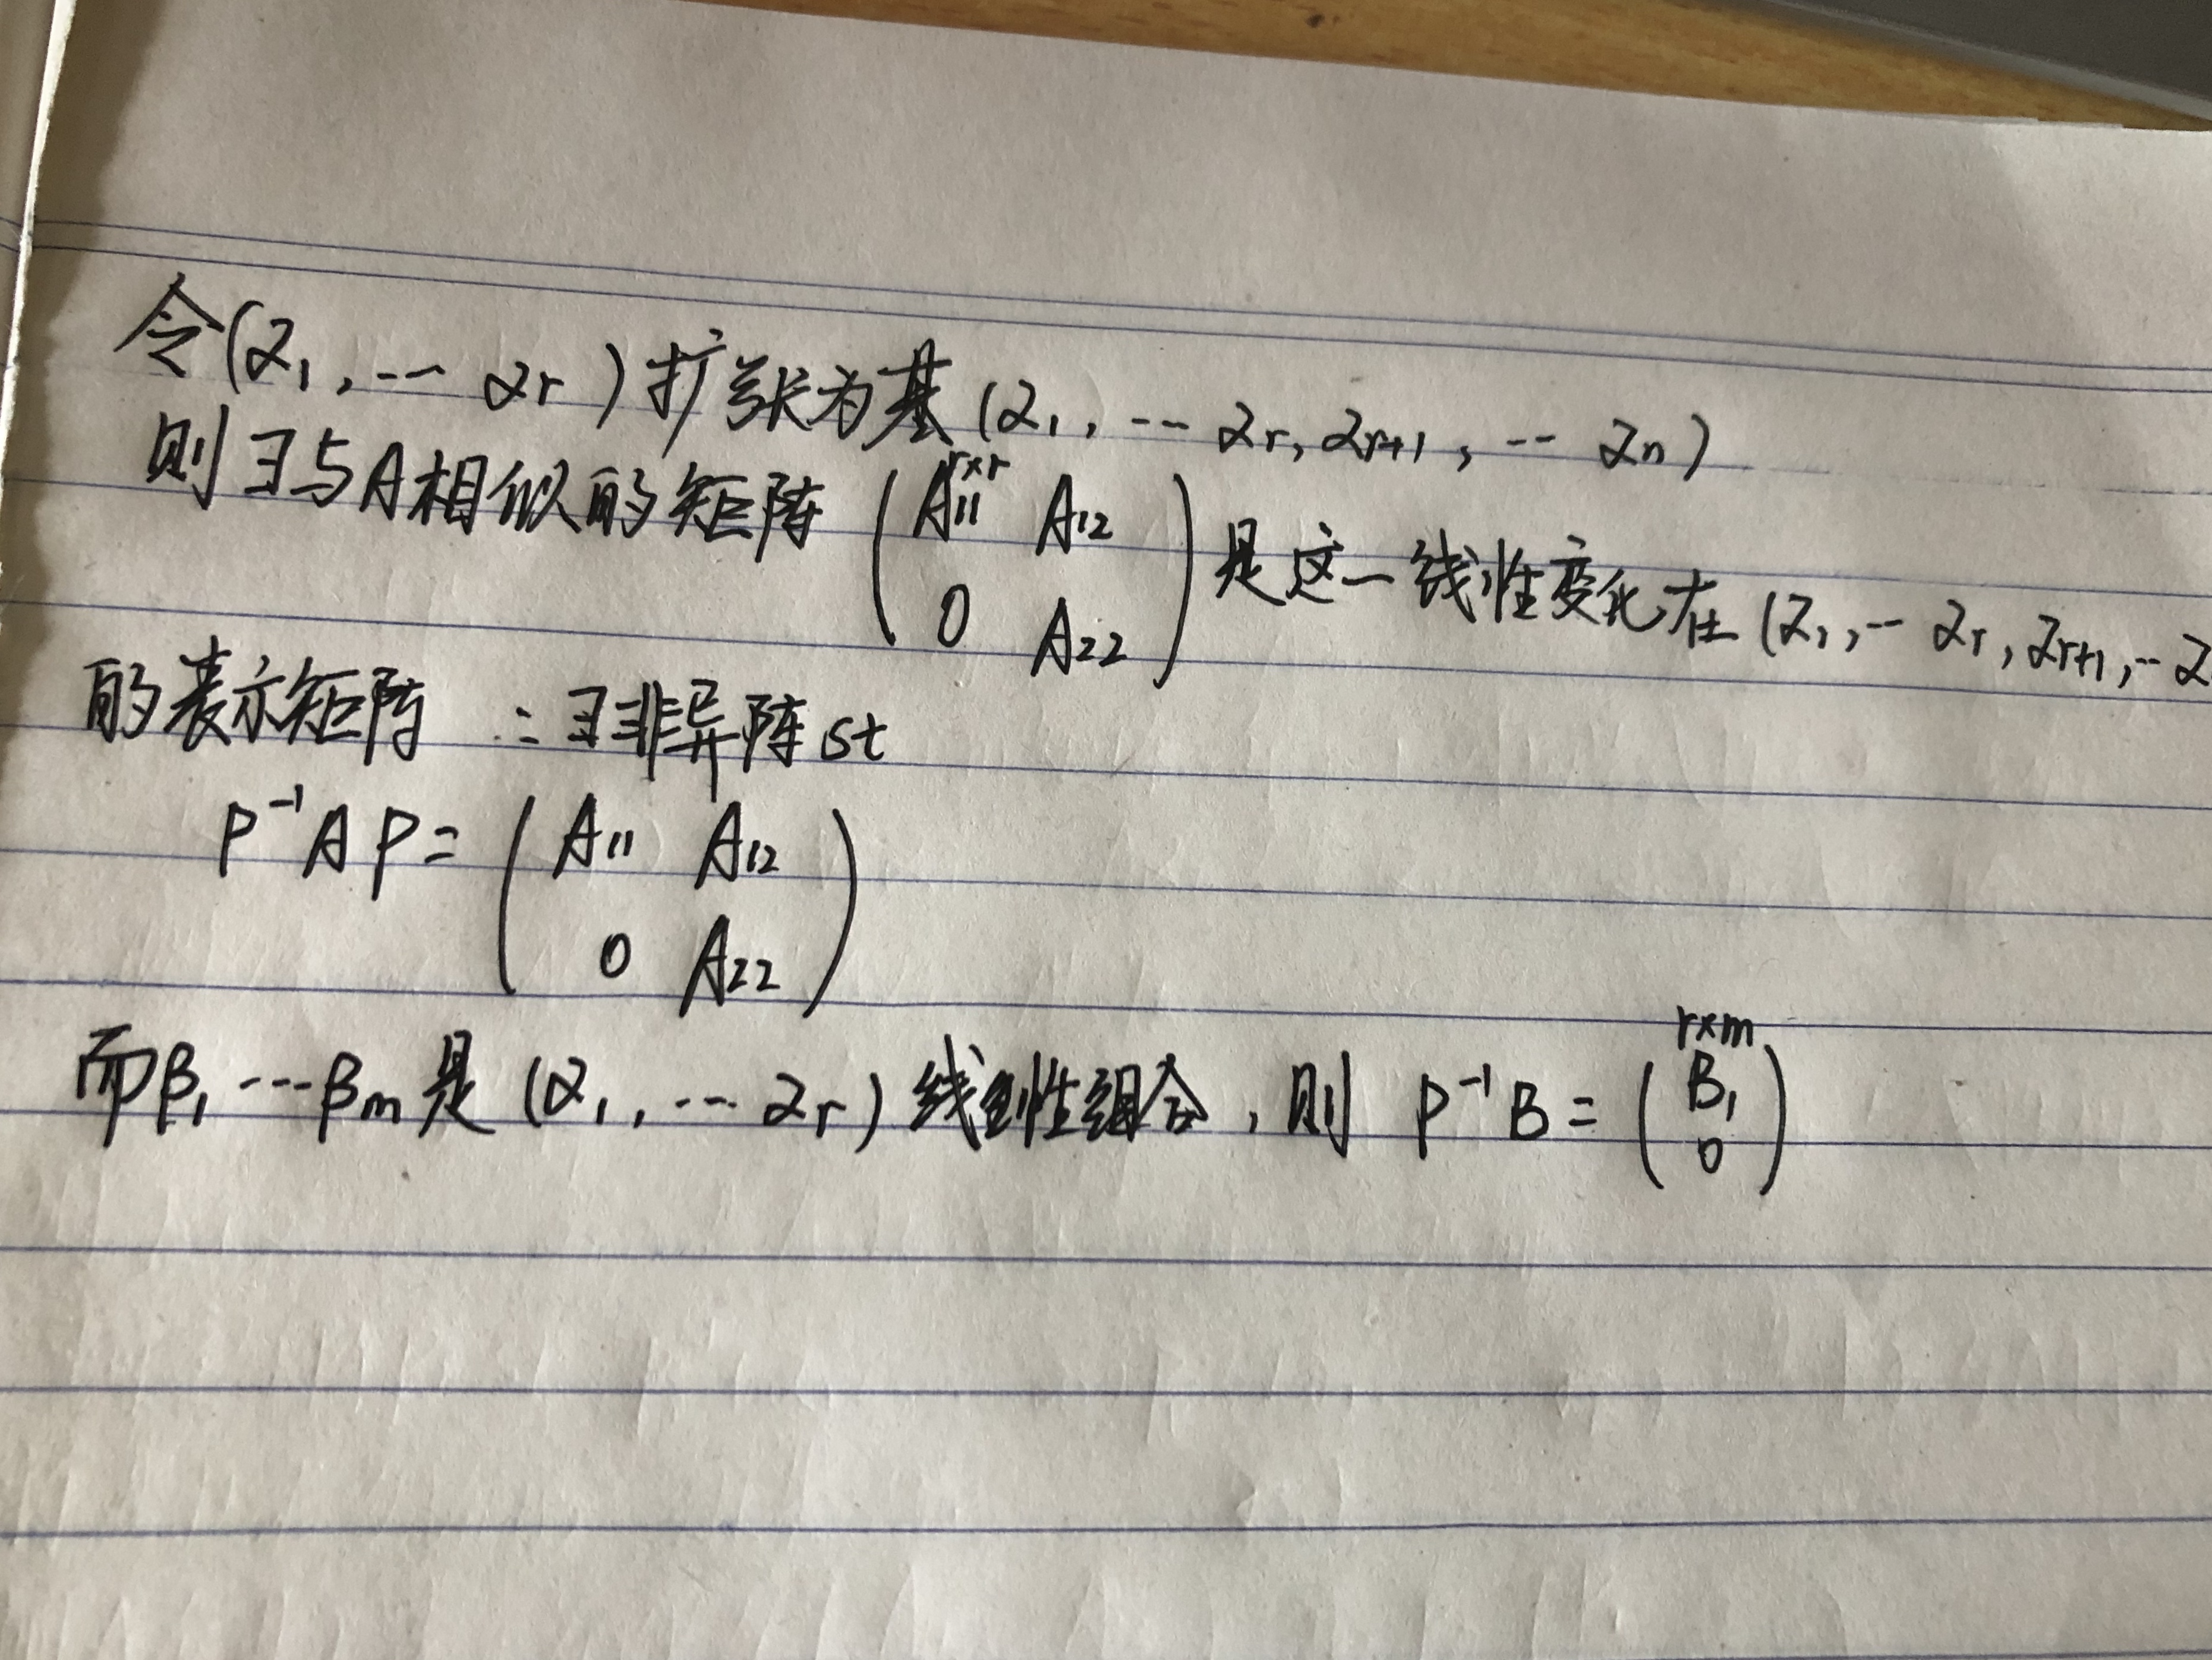 令(α₁, ··· αᵣ)扩张为基(α₁, ··· αᵣ, αᵣ₊₁, ··· αₙ)
则∃与A相似的矩阵 ( A₁₁^{r×r} A₁₂ ; 0 A₂₂ ) 是这一线性变化在(α₁, ·· αᵣ, αᵣ₊₁, ·· α
的表示矩阵 ∴∃非异阵 st
P⁻¹AP = ( A₁₁ A₁₂ ; 0 A₂₂ )
而β₁ ···βₘ是(α₁, ··· αᵣ)线性组合, 则 P⁻¹B = ( B₁^{r×m} ; 0 )